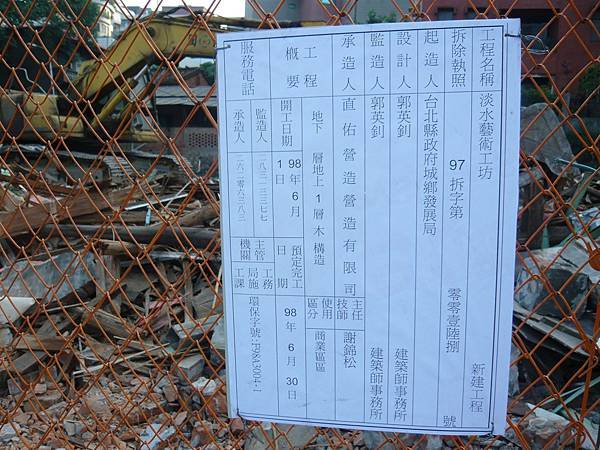 工程名稱 淡水藝術工坊 新建工程
拆除執照 97 拆字第 零零壹陸捌 號
起造人 台北縣政府城鄉發展局
設計人 郭英釗 建築師事務所
監造人 郭英釗 建築師事務所
承造人 直佑營造營造有限司 主任技師 謝錦松
工程概要 地下 層地上 1 層木構造 使用區分 商業區區
開工日期 98 年 6 月 1 日 預定完工日期 98 年 6 月 30 日
服務電話 監造人 主管機關 工務局施工課
承造人 二六二零六三八三 環保字號:F08A3004-1